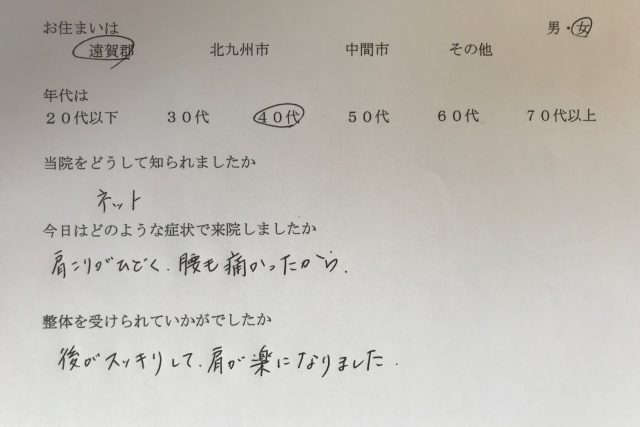 お住まいは 男・女
遠賀郡 北九州市 中間市 その他
年代は
20代以下 30代 40代 50代 60代 70代以上
当院をどうして知られましたか
ネット
今日はどのような症状で来院しましたか
肩こりがひどく、腰も痛かったから、
整体を受けられていかがでしたか
後がスッキリして、肩が楽になりました.